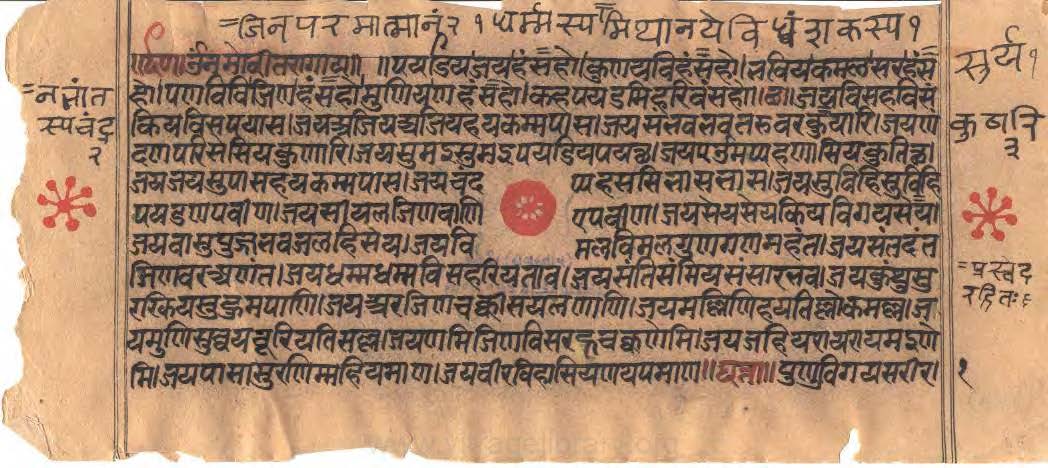 =जिनपरमात्मानं२ १ धर्म्मस्य =मिथ्यानयेविध्वंशकस्य१
॥ॐनमोवीतरागाय॥ ॥पयडियजयहंसहो।कुणयविहंसहो।भवियकमलसरहंस
हो।पणविविजिणहंसहो।मुणियणहंसहो।कहपयडमिहरिवंसहो॥छ॥जयविसहविसं
कियविसपयास।जयअजियअजियहयकम्मपास।जयसंभवभवतरुवरकुठारि।जयणं
दणपरिसेसियकुणारि।जयसुमइसुमइपयडियपयत्थ।जयपउमप्पहणासियकुतित्थ।
जयजयसुपासहयकम्मपास।जयचंद प्पहससिभासभास।जयसुविहिसुविहि
पयडणपवीण।जयसीयलजिणवाणि पवीण।जयसेयसेयकियविगयसेय।
जयवासुपुज्जभवजलहिसेय।जयवि मलविमलगुणगणमहंत।जयसंतदंत
जिणवरअणंत।जयधम्मधम्मविसहरियताव।जयसंतिसंमियसंसारभाव।जयकुंथुसु
रक्कियसुहुमपाणि।जयअरजिणचक्कीसयलणाणि।जयमल्लिणिहयतिसल्लोकमल्ल।ज
यमुणिसुव्वयचूरियतिसल्ल।जयणमिजिणविसरहचक्कणेमि।जयजहियरायरायमइणे
मि।जयपासासुरणिम्महियमाण।जयवीरविहासियणयपमाण॥घत्ता॥पुणुविगयसरीर।
=नसांत
स्यचंद्र
२
सूर्य१
कुठारि
३
=प्रस्वेद
रहितः६
१